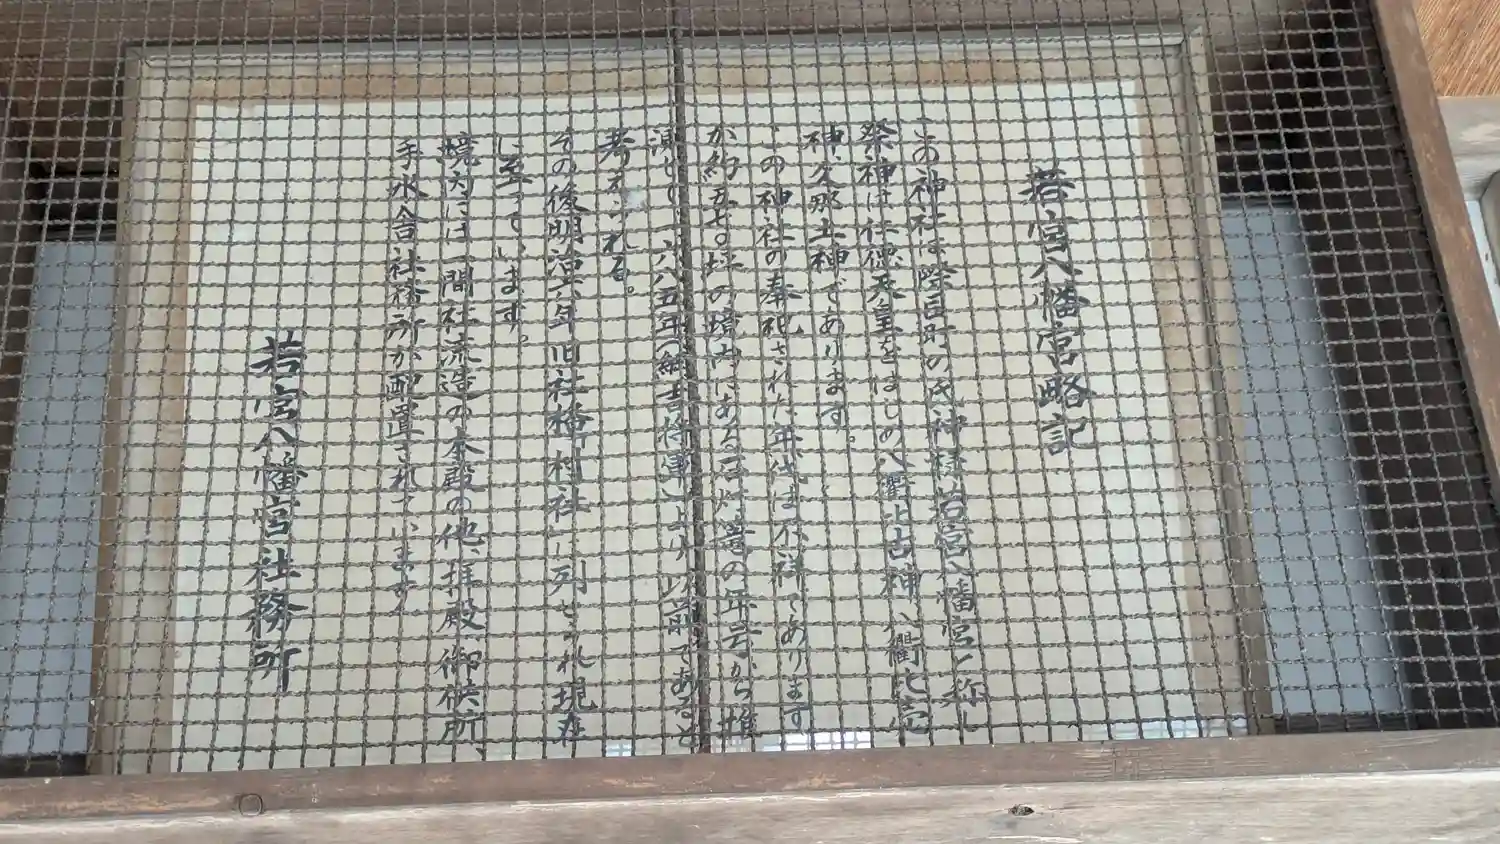 若宮八幡宮略記
この神社は際目町の氏神様若宮八幡宮と称し
祭神は仁徳天皇をはじめ八衢比古神、八衢比売
神、久那土神であります。
この神社の奉祀された年代は不詳であります
が約五七〇坪の境内にある石灯篭の年号から推
測して一六八五年(綱吉将軍)より以前であると
考えられる。
その後明治六年旧社格村社に列せられ現在
に至っています。
境内には一間社流造の本殿の他、拝殿、御供所、
手水舎社務所が配置されています。
若宮八幡宮社務所